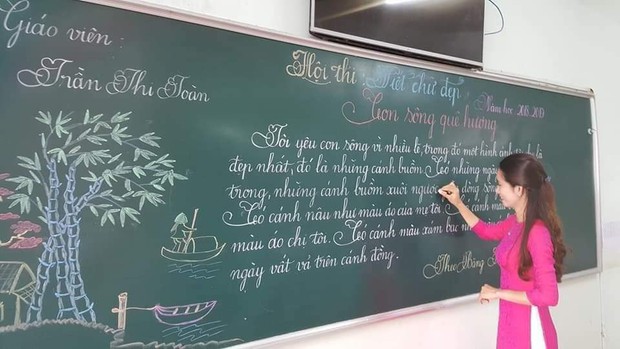 Giáo viên:
Trần Thị Toàn
Hội thi: Viết chữ đẹp
Năm học 2018-2019
Con sông quê hương
Tôi yêu con sông vì nhiều lẽ, trong đó một hình ảnh
đẹp nhất, đó là những cánh buồm. Có những ngày
trong, những cánh buồm xuôi ngược dòng sông
Có cánh nâu như màu áo của mẹ tôi. Có cánh
màu áo chị tôi. Có cánh màu xám bạc
ngày vất vả trên cánh đồng.
Theo Băng